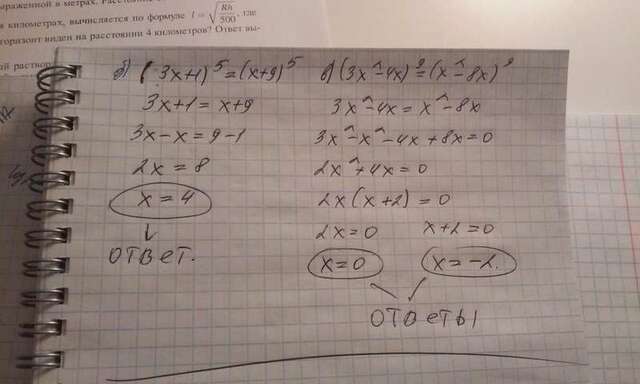 раженной в метрах. Расстояние
в километрах, вычисляется по формуле l = √(Rh/500), где
горизонт виден на расстоянии 4 километров? Ответ вы-
ый раствор
б) (3x+1)^5 = (x+9)^5
3x+1 = x+9
3x-x = 9-1
2x = 8
x = 4
ОТВЕТ.
(3x^2-4x)^9 = (x^2-8x)^9
3x^2-4x = x^2-8x
3x^2-x^2-4x+8x=0
2x^2+4x=0
2x(x+2)=0
2x=0 x+2=0
x=0 x=-2.
ОТВЕТЫ